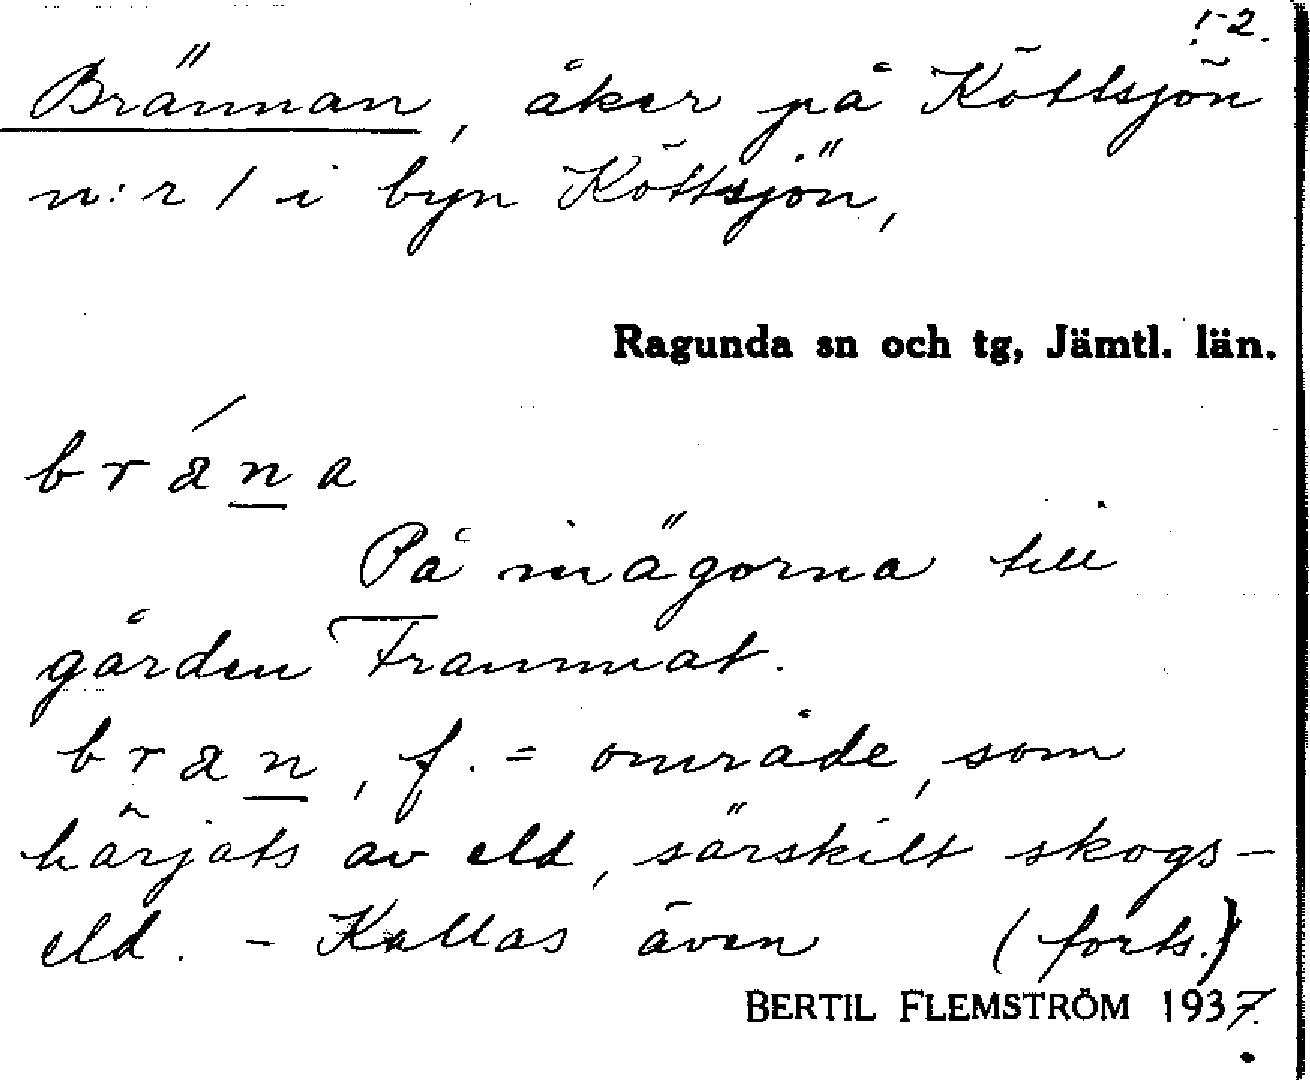 1-2.
Brännan, åker på Köttsjön
n:r 1 i byn Köttsjön,
Ragunda sn och tg, Jämtl. län.
brána
På inägorna till
gården Frammat.
bran, f. = område, som
härjats av eld, särskilt skogs-
eld. - Kallas även (forts.)
BERTIL FLEMSTRÖM 1937.